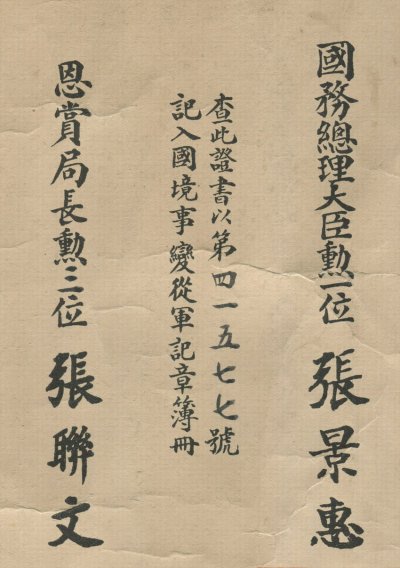 國務總理大臣勲一位 張景惠
查此證書以第四一五七七號
記入國境事變從軍記章簿冊
恩賞局長勲三位 張聯文